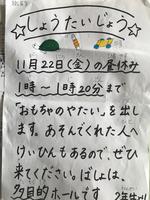 ☆しょうたいじょう☆
11月22日(金)の昼休み
1時〜1時20分まで
「おもちゃのやたい」を出し
ます。あそんでくれた人へ
けいひんもあるので、ぜひ
来てください。ばしょは、
多目的ホールです
2年生